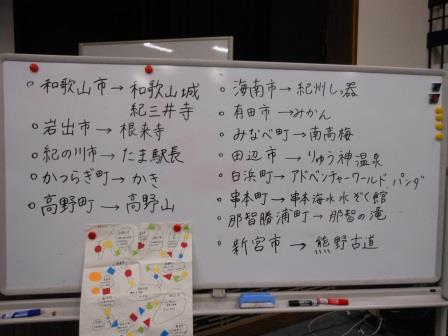 ○ 和歌山市→和歌山城
紀三井寺
○ 岩出市→根来寺
○ 紀の川市→たま駅長
○ かつらぎ町→かき
○ 高野町→高野山
○ 海南市→紀州しっ器
○ 有田市→みかん
○ みなべ町→南高梅
○ 田辺市→りゅう神温泉
○ 白浜町→アドベンチャーワールド パンダ
○ 串本町→串本海水水ぞく館
○ 那智勝浦町→那智の滝
○ 新宮市→熊野古道